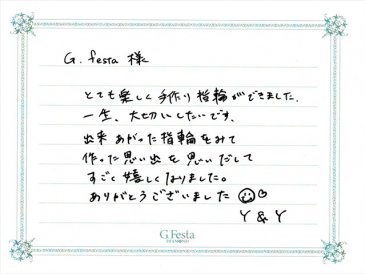 G. festa 様
とても楽しく手作り指輪ができました。
一生、大切にしたいです。
出来あがった指輪をみて
作った思い出を思いだして
すごく嬉しくなりました。
ありがとうございました
Y & Y
G.Festa
DIAMOND